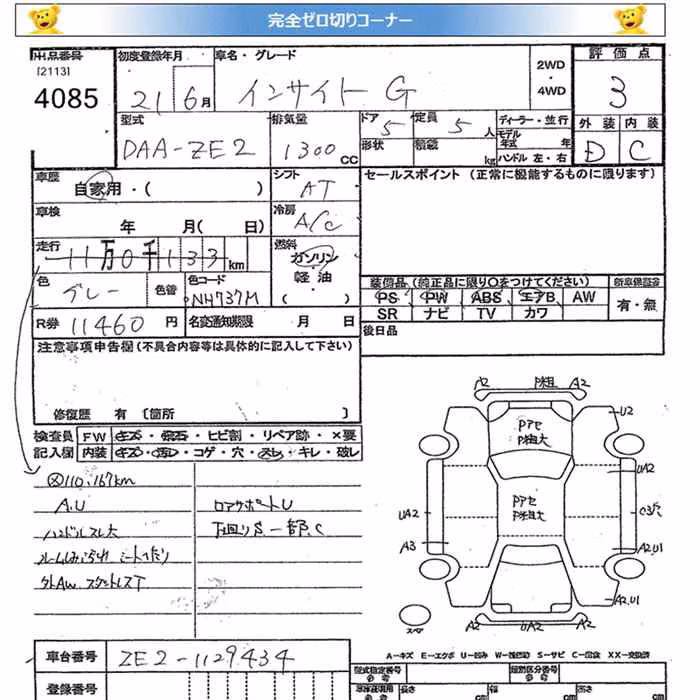 完全ゼロ切りコーナー
出品番号
[2113]
4085
初度登録年月
21 6月
車名・グレード
インサイト G
2WD
・
4WD
評価点
3
型式
DAA-ZE2
排気量
1300 CC
ドア
5
定員
5 人
ディーラー・並行
モデル
年式 年
ハンドル 左・右
形状
積載
kg
外装 内装
D C
車歴
自家用・( )
シフト
AT
セールスポイント (正常に機能するものに限ります)
車検
年 月( 日)
冷房
A/C
走行
11万0千133km
燃料
ガソリン
軽油
( )
色
グレー
色替
色コード
NH737M
装備品 (純正品に限り○をつけてください)
新車保証書
PS PW ABS エアB AW
SR ナビ TV カワ
有・無
R券 11460 円
名変通知期限 月 日
後日品
注意事項申告欄 (不具合内容等は具体的に記入して下さい)
修復歴 有 〔箇所 〕
検査員
記入欄
FW キズ・飛石・ヒビ割・リペア跡・×要
内装 キズ・汚レ・コゲ・穴・スレ・キレ・破レ
110,167km
A.U
ハンドルスレ大
ロアサポートU
下回りS 一部C
外AW スタットレスT
A2 P粗 A2
U2
Pアセ
P粗大
UA2
Pアセ
P粗大
UA2
A3
A2U1
A2,U1
スペア
A2 UA2 A2
A-キズ E-エクボ U-凹み W-補修跡 S-サビ C-腐食 XX-交換済
車台番号
ZE2-1129434
登録番号
型式指定番号
参考
類別区分番号
参考
車庫証明用
参考
長さ cm
幅 cm
高さ cm